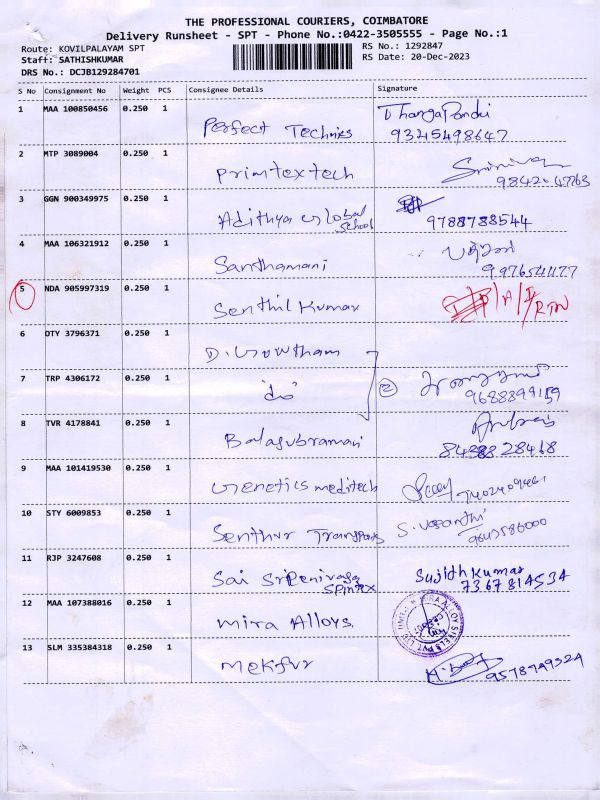 THE PROFESSIONAL COURIERS, COIMBATORE
Delivery Runsheet - SPT - Phone No.:0422-3505555 - Page No.:1
Route: KOVILPALAYAM SPT
RS No.: 1292847
Staff: SATHISHKUMAR
RS Date: 20-Dec-2023
DRS No.: DCJB129284701
S No Consignment No Weight PCS Consignee Details Signature
1 MAA 100850456 0.250 1 Perfect Technics ThangaPandi
9345498647
2 MTP 3089004 0.250 1 Primtextech
98420 47763
3 GGN 900349975 0.250 1 Adithya Global School
9788788544
4 MAA 106321912 0.250 1 Santhamani
5 NDA 905997319 0.250 1 Senthil Kumar /A/ /RTN
6 DTY 3796371 0.250 1 D. Gowtham
7 TRP 4306172 0.250 1 do 2
9688399159
8 TVR 4178841 0.250 1 Balasubramani
28468
9 MAA 101419530 0.250 1 Genetics meditech
10 STY 6009853 0.250 1 Senthur Transports S. Vasanthi
11 RJP 3247608 0.250 1 Sai Sreenivasa Spintex Sujith Kumar
7367814534
12 MAA 107388016 0.250 1 Mira Alloys
MIRA ALLOY STEELS PVT. LTD.
13 SLM 335384318 0.250 1
9578949324